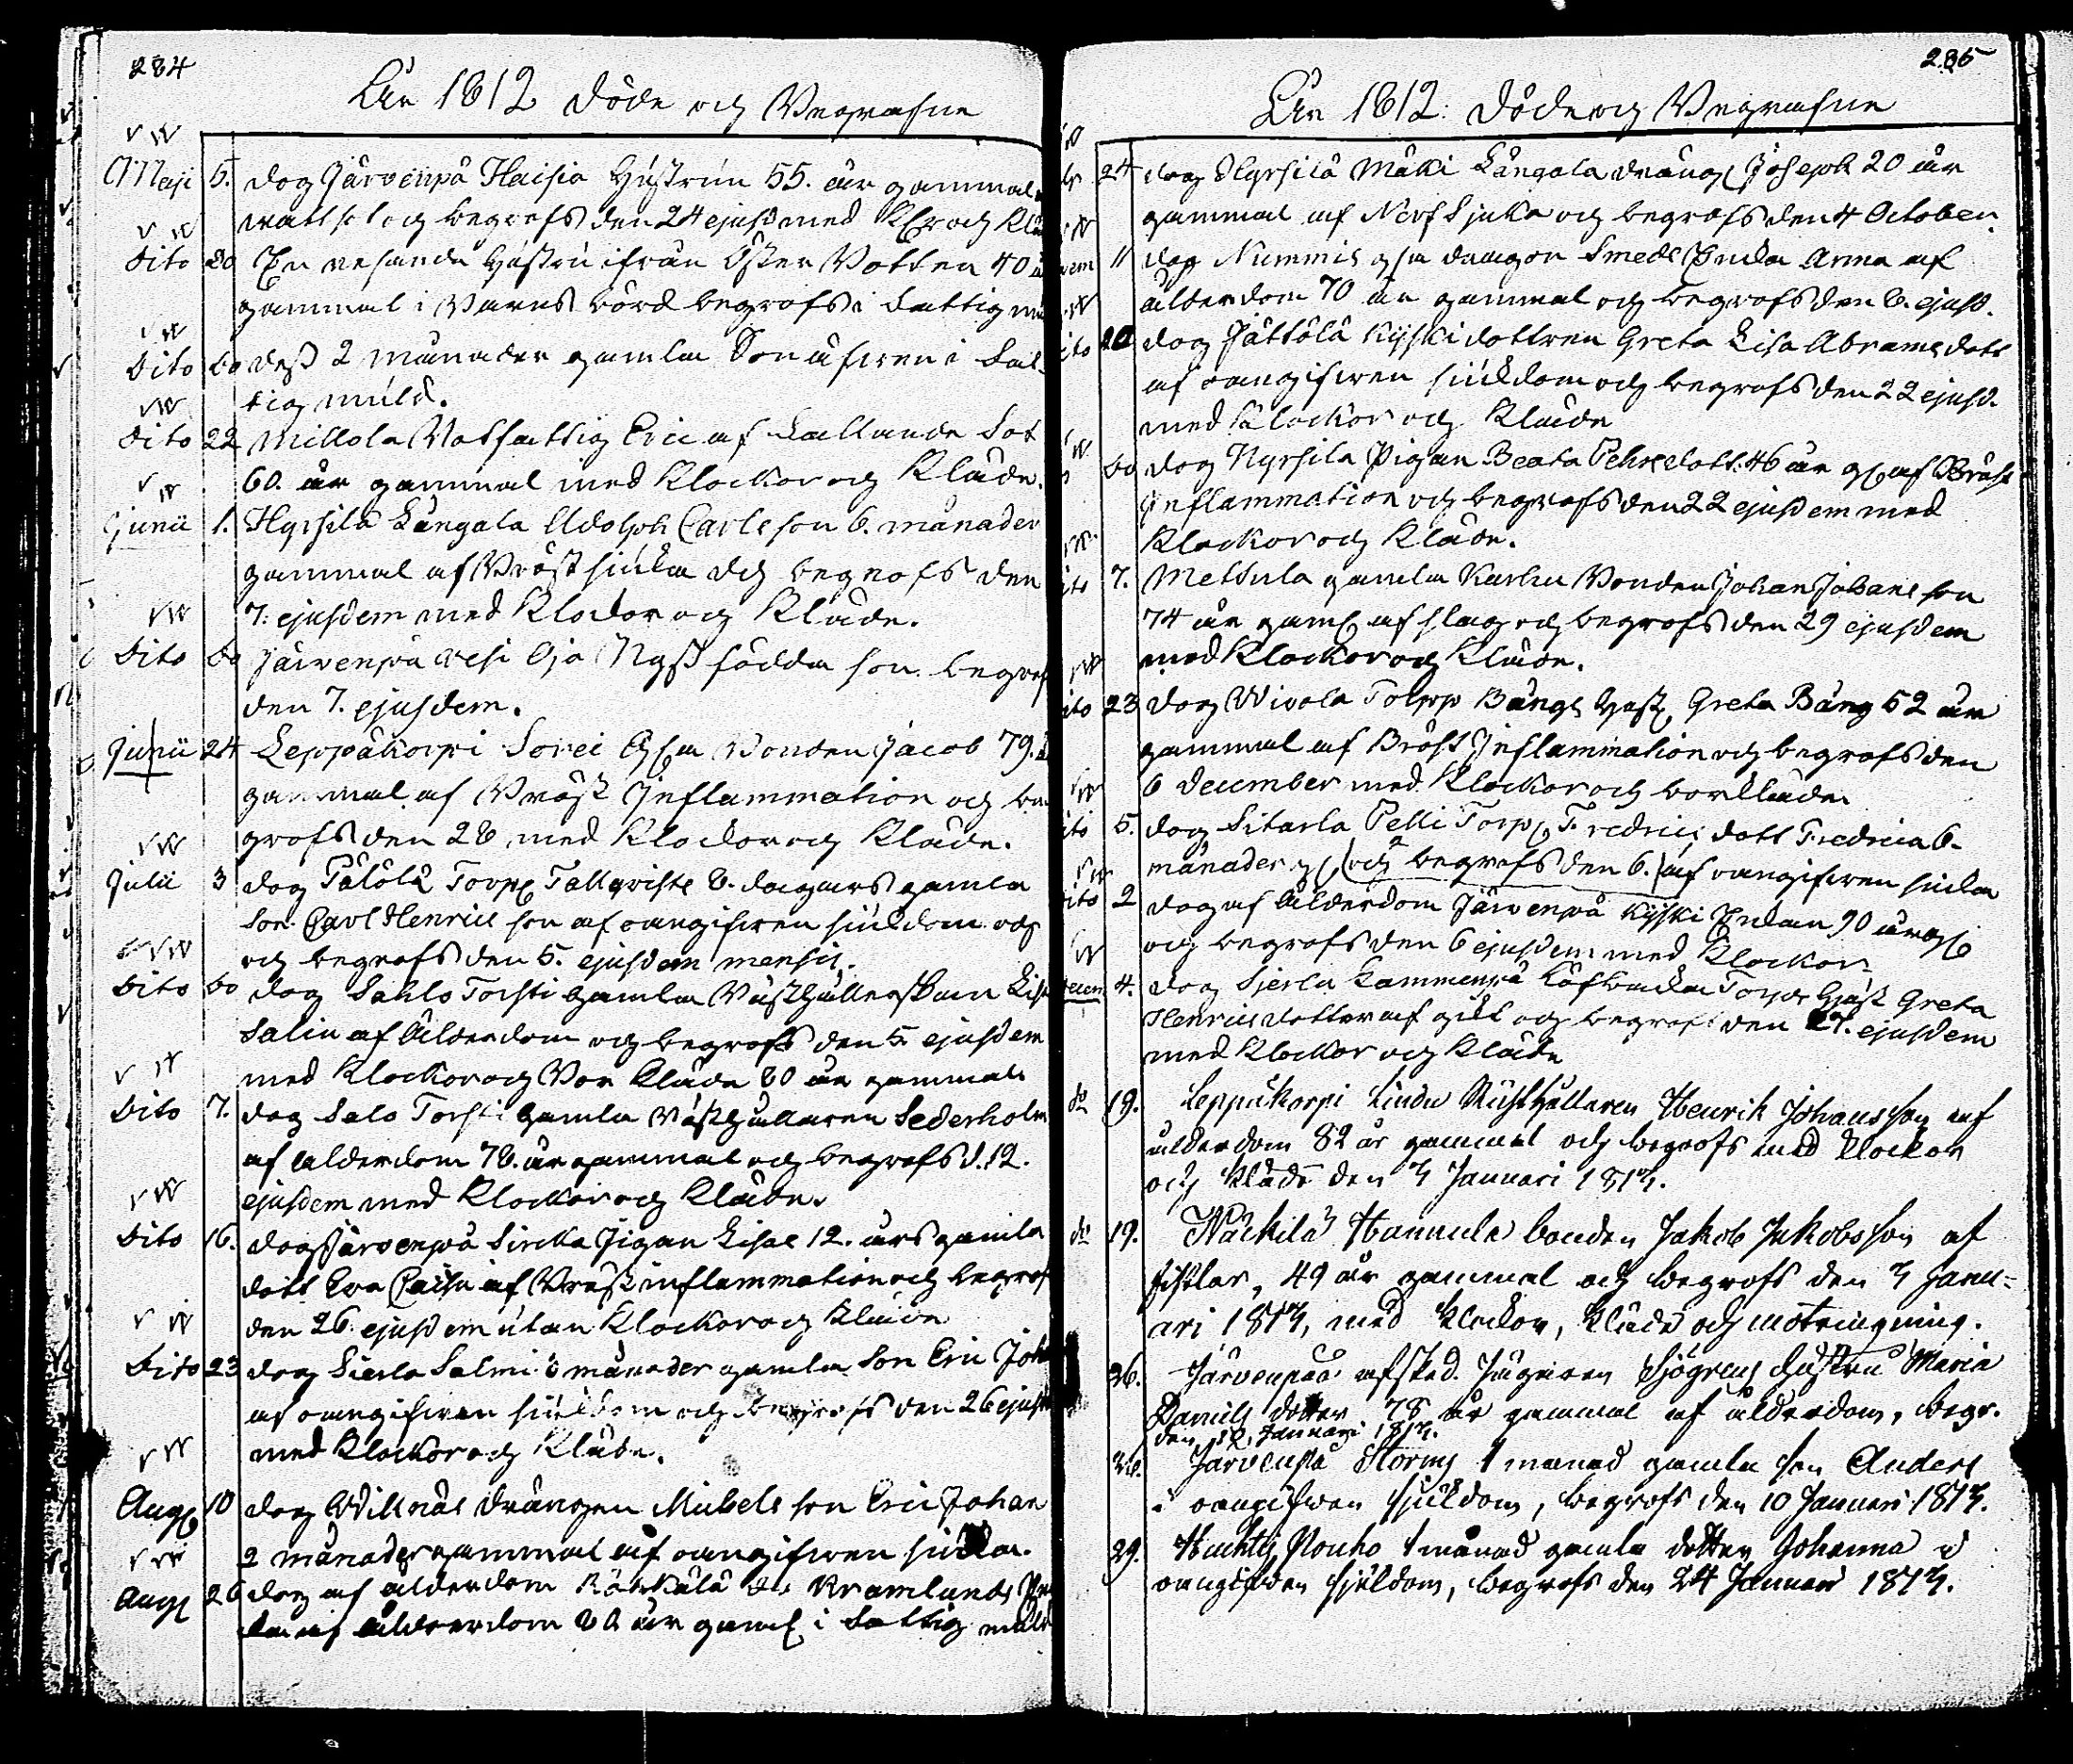 284
År 1812 döde och Begrafne
Maji 5. dog Järvenpä Haisia Hustrun 55. år gammal
och begrofs den 24 ejusd med och
Dito 20 En resande Hustru ifrån Öster Botten 40
gammal i Barns börd begrofs i Fattig
Dito do dess 2 månader gamla Son äfwen i Fat-
tig muld.
Dito 22 Millola Rotfattig Eric af fallande Sot
60. år gammal med Klockor och Kläde.
Junii 1. Hyrsilä Långala Adolph Carlsson 6. månader
gammal af Bröstsiuka och begrofs den
7: ejusdem med Klockor och Kläde.
Dito do Järwenpä wesi Oja Nyss födda son begrof
den 7. ejusdem.
Junii 24 Leppäkorpi Sorri Gamla Bonden Jacob 79.
gammal af Bröst Inflammation och be
grofs den 28 med Klockor och Kläde.
Julii 3 dog Palölä Torp Tallqvists 8. dagars gamla
son Carl Henric son af oangifwen siukdom och
och begrofs den 5. ejusdem mensis.
Dito do dog Sahlo Torsti Gamla Rusthållerskan
Salin af Ålderdom och begrofs den 5 ejusdem
med Klockor och Bor Kläde 80 år gammal
Dito 7. dog Salo Torsti Gamla Rusthållaren Sederholm
af alderdom 78. år gammal och begrofs d. 12.
ejusdem med Klockor och Kläde.
Dito 16. dog Järvenpä Sirckka Pigan Lisas 12. års gamla
dott Eva Caisa af Bröst inflammation och begrof
den 26 ejusdem utan Klockor och Kläde
Dito 23 dog Sierla Salmi 3 månader gamla Son Eric Joh
af oangifwen siukdom och begrofs den 26 ejusd
med Klockor och Kläde.
Aug 10 dog Willnäs drängen Michels son Eric Johan
2 månader gammal af oangifwen siuka.
Aug 26 dog af alderdom Kramlunds
af ålderdom 80 år gaml i Fattig muld
285
År 1812. döde och Begrafne
24 dog Hyrsilä Mäki Långala dräng Joseph 20 år
gammal af Nerf Sjuka och begrofs den 4 October
11 dog Nummis Smeds Enka Anna af
ålderdom 70 år gammal och begrofs den 8. ejusd.
20 dog Jättölä Kyski dottren Greta Lisa Abrams dott
af oangifwen siukdom och begrofs den 22 ejusd.
med Klockor och Kläde
do dog Hyrsila Pigan Beata Pehrsdott. 46 år g af Bröst
Inflammation och begrofs den 22 ejusdem med
Klockor och Kläde.
7. Mettula gamla Karhu Bonden Johan Johans son
74 år gaml af slag och begrofs den 29 ejusdem
med Klockor och Kläde.
23 dog Wivola Torpp Bångs Hust Greta Bång 52 år
gammal af Bröst Inflammation och begrofs den
6 december med Klockor och borkläde
5. dog Sitarla Pelli Torp Fredrics dott Fredrica 6.
månader g och begrofs den 6. af oangifwen siuka
2 dog af Ålderdom Järwenpä Kyski Enkan 90 år g
och begrofs den 6 ejusdem med Klockor
4. dog Sjerla Kammenpä Torp Hust Greta
Henrics dotter af gikt och begrof den 27. ejusdem
med Klockor och Kläde
do 19. Leppäkorpi Lindu Rusthållaren Henrik Johansson af
ålderdom 82 år gammal och begrofs med Klockor
och Kläde den 3 Januari 1813.
do 19. Näckilä Hannula bonden Jakob Jakobsson af
fistlar, 49 år gammal och begrofs den 3 Janu=
ari 1813, med Klockor, Kläde och motringning.
26. Järvenpää afsked. Jägaren Sjögrens Hustru Maria
Daniels dotter 78 år gammal af ålderdom, begr.
den 12 Januari 1813.
26. Järvenpää Storms 1 månad gamla son Anders
i oangifwen sjukdom, begrofs den 10 Januari 1813.
29. Huchtis Nouho 1 månad gamla dotter Johanna i
oangifwen sjukdom, begrofs den 24 Januari 1813.